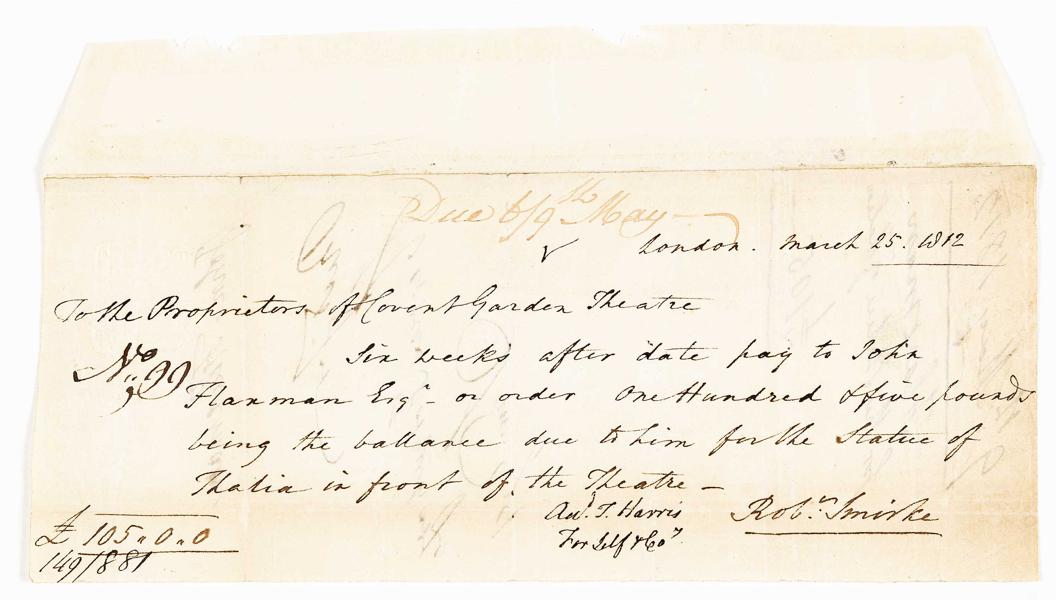 Due 6/9th May
London. March 25. 1812
To the Proprietors of Covent Garden Theatre
No 99
Six weeks after date pay to John
Flaxman Esqr. or order One Hundred & five pounds
being the ballance due to him for the Statue of
Thalia in front of the Theatre
Robt. Smirke
T. Harris
For Self & Co.
£ 105 " 0 " 0
149/881